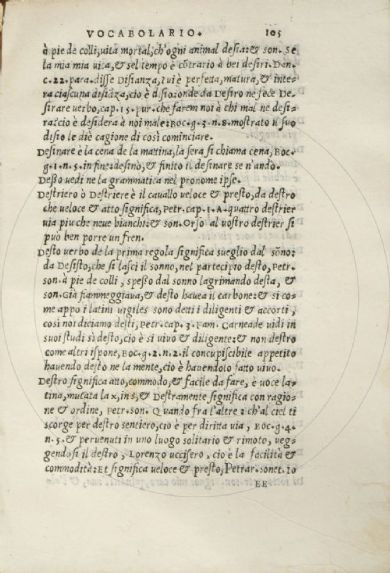 VOCABOLARIO. 105
à pie de colli, uita mortal, ch'ogni animal desia: & son. Se
la mia uita, & sel tempo è cõtrario à bei desiri. Dan.
c. 22. para. disse Disianza, iui è perfetta, matura, & inte-
ra ciascuna disiãza, cio è disio: onde da Desiro ne fece De-
sirare uerbo, cap. 15. Pur. che farem noi à chi mal ne desi-
ra, cio è desidera à noi male: Boc. g. 3. n. 8. mostrato il suo
disio le diè cagione di così cominciare.
Desinare è la cena de la mattina, la sera si chiama cena, Boc.
g. 1. n. 5. in fine: desinò, & finito il desinare se n'ando.
Desso uedi ne la grammatica nel pronome ipse.
Destriero ò Destriere è il cauallo ueloce & presto, da destro
che ueloce & atto significa, Petr. cap. 1. A. quattro destrier
uia piu che neue bianchi: & son. Orso al uostro destrier si
può ben porre un fren.
Desto uerbo de la prima regola significa sueglio dal sõno:
da Desisto, che si lasci il sonno, nel participio desto, Petr.
son. à pie de colli, spesso dal sonno lagrimando desta, &
son. Gia fiammeggiaua, & desto hauea il carbone: & si co
me appo i latini uigiles sono detti i diligenti & accorti,
così noi diciamo desti, Petr. cap. 3. Fam. Carneade uidi in
suoi studi sì desto, cio è si uiuo & diligente: & non destro
come altri ispone, Boc. g. 2. n. 2. il concupiscibile appetito
hauendo desto ne la mente, cio è hauendolo fatto uiuo.
Destro significa atto, commodo, & facile da fare, è uoce la-
tina, mutata la x, in s, & Destramente significa con ragio-
ne & ordine, Petr. son. Quando fra l'altre: ch'al ciel ti
scorge per destro sentiero, cio è per diritta uia, Boc. g. 4.
n. 5. & peruenuti in uno luogo solitario & rimoto, ueg-
gendosi il destro, Lorenzo uccisero, cio è la facilità &
commodità: Et significa ueloce & presto, Petrar. sonet. Io
EE